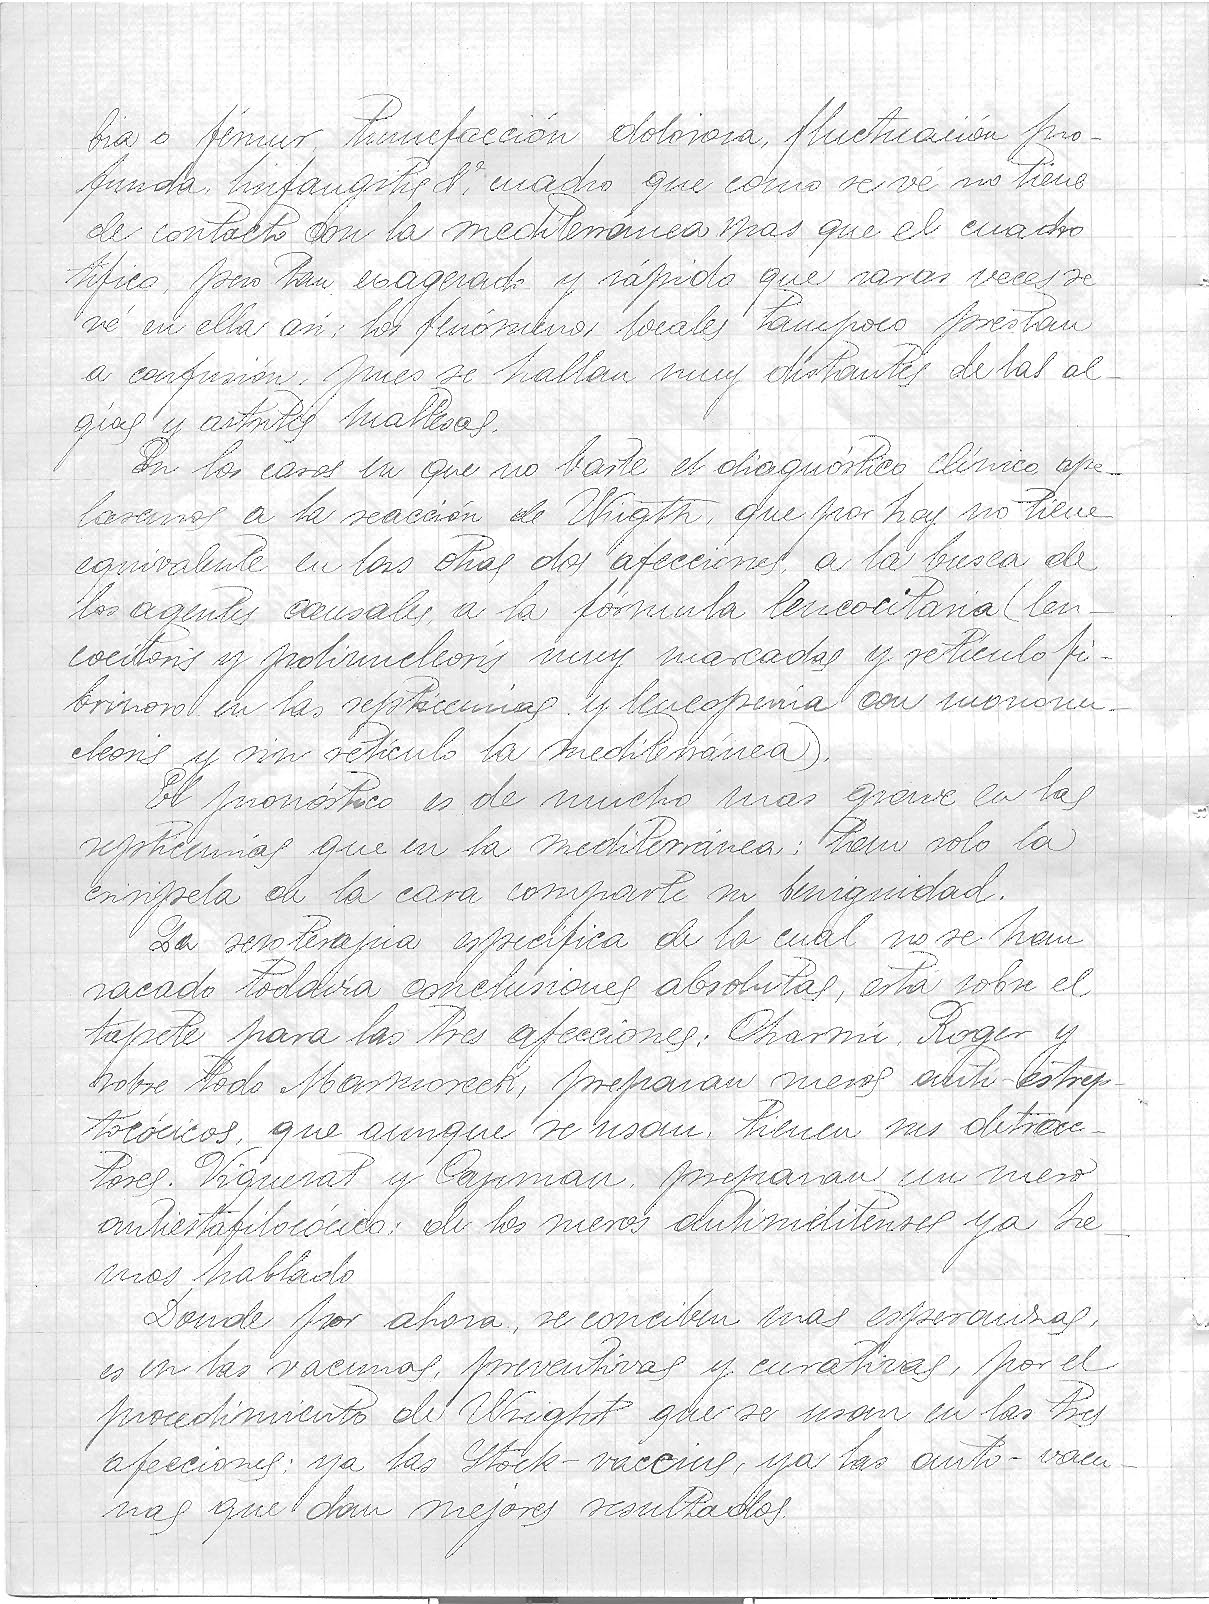 bia o fémur, tumefacción dolorosa, fluctuación pro-
funda. linfangitis &ª, cuadro que como se vé no tiene
de contacto con la mediterránea mas que el cuadro
tífico, pero tan exagerado y rápido que raras veces se
vé en ella así; los fenómenos locales tampoco prestan
a confusión, pues se hallan muy distantes de las al-
gias y artritis maltesas.
En los casos en que no baste el diagnóstico clínico ape-
laremos a la reacción de Wrigth, que por hoy no tiene
equivalente en las otras dos afecciones, a la busca de
los agentes causales, a la fórmula leucocitaria (leu-
cocitosis y polinucleosis muy marcadas y retículo fi-
brinoso en las septicemias y leucopenia con mononu-
cleosis y sin retículo la mediterránea).
El pronóstico es de mucho mas grave en las
septicemias que en la mediterránea; tan solo la
erisipela de la cara comparte su benignidad.
La seroterapia específica de la cual no se han
sacado todavia conclusiones absolutas, está sobre el
tapete para las tres afecciones; Charrin, Roger y
sobre todo Marmoreck, preparan sueros anti-estrep-
tocócicos, que aunque se usan, tienen sus detrac-
tores. Viguerat y Capman, preparan un suero
antiestafilocócico; de los sueros antimelitenses ya he-
mos hablado
Donde por ahora, se conciben mas esperanzas,
es en las vacunas, preventivas y curativas, por el
procedimiento de Wright que se usan en las tres
afecciones; ya las Stock-vaccins, ya las auto-vacu-
nas que dan mejores resultados.